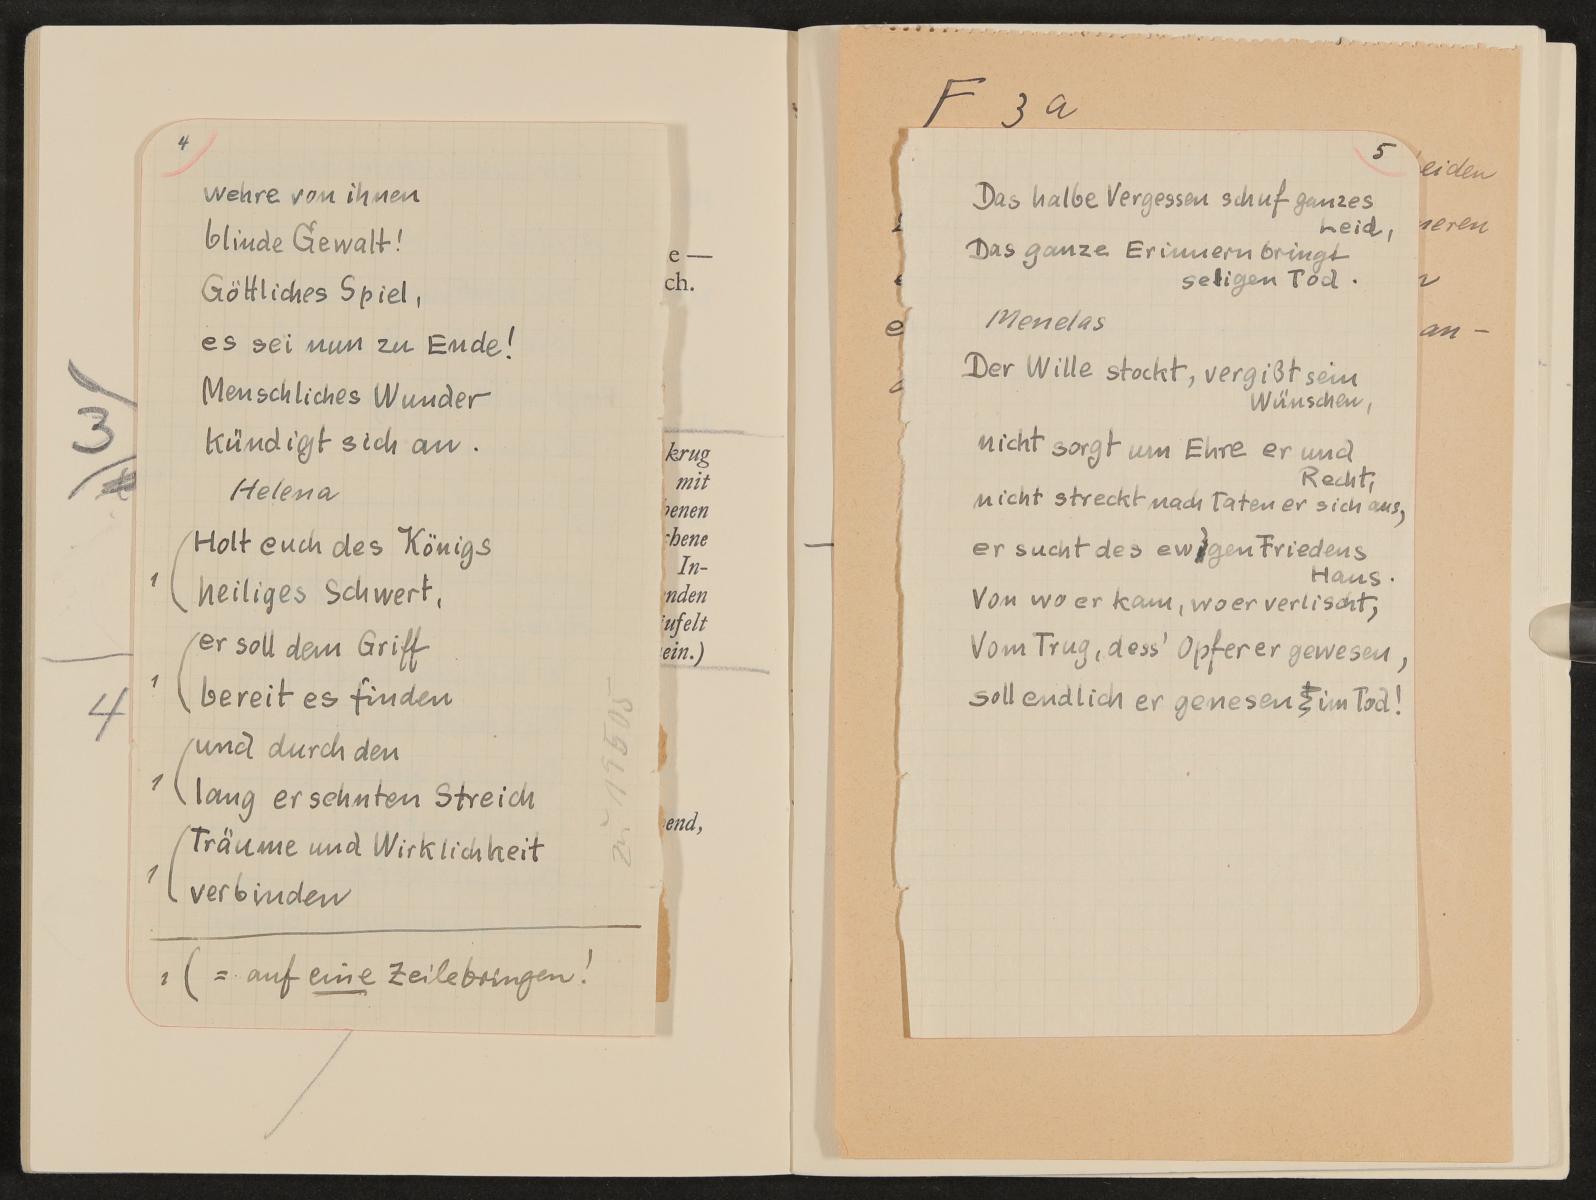 4
wehre von ihnen
blinde Gewalt!
Göttliches Spiel,
es sei nun zu Ende!
Menschliches Wunder
kündigt sich an.
Helena
Holt euch des Königs
1 ( heiliges Schwert,
er soll dem Griff
1 ( bereit es finden
und durch den
1 ( lang ersehnten Streich
Träume und Wirklichkeit
1 ( verbinden
1 ( = auf eine Zeile bringen!
3
4
e —
ch.
krug
mit
benen
chene
In-
nden
ufelt
ein.)
end,
F 3 a
5
Das halbe Vergessen schuf ganzes
Leid,
Das ganze Erinnern bringt
seligen Tod.
Menelas
Der Wille stockt, vergißt sein
Wünschen,
nicht sorgt um Ehre er und
Recht,
nicht streckt nach Taten er sich aus,
er sucht des ewigen Friedens
Haus.
Von wo er kam, wo er verlischt,
Vom Trug, dess' Opfer er gewesen,
soll endlich er genesen im Tod!
eiden
neren
an -